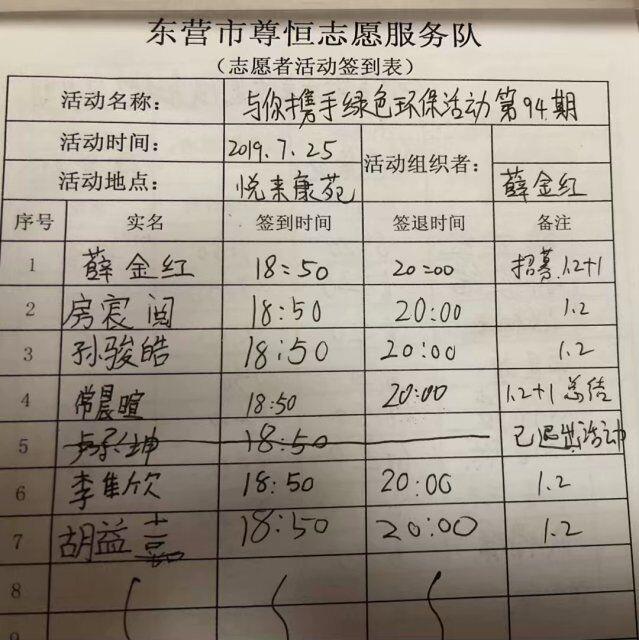 东营市尊恒志愿服务队
（志愿者活动签到表）
活动名称： 与你携手绿色环保活动第94期
活动时间： 2019.7.25 活动组织者：
活动地点： 悦来康苑 薛金红
序号 实名 签到时间 签退时间 备注
1 薛金红 18:50 20:00 招募 1.2+1
2 房宸闾 18:50 20:00 1.2
3 孙骏皓 18:50 20:00 1.2
4 常晨暄 18:50 20:00 1.2+1 总结
5 18:50 已退出活动
6 李隹欣 18:50 20:00 1.2
7 胡益 18:50 20:00 1.2
8
9